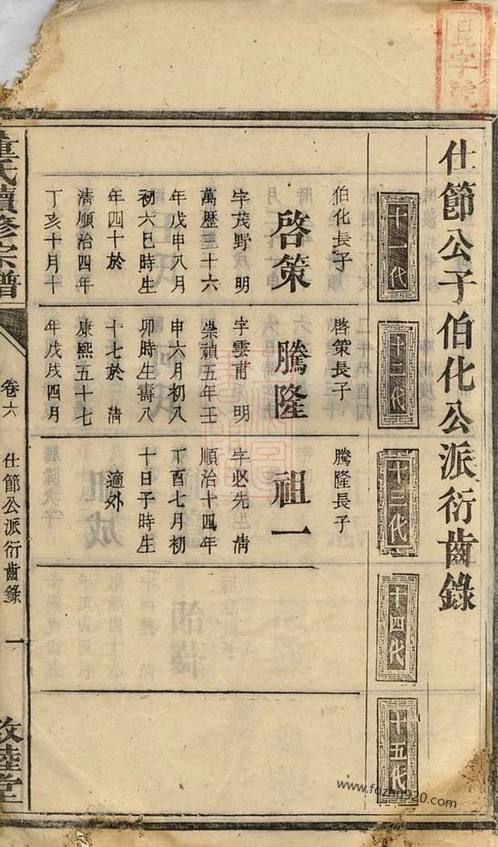 字號
仕節公子伯化公派衍齒錄
十一代
伯化長子
啓策
字茂野 明
萬歷三十六
年戊申八月
初六巳時生
年四十於
清順治四年
丁亥十月十
十二代
啓策長子
騰隆
字雲甫 明
崇禎五年壬
申六月初八
卯時生壽八
十七於 清
康熙五十七
年戊戌四月
十三代
騰隆長子
祖一
字必先 清
順治十四年
丁酉七月初
十日子時生
適外
十四代
十五代
氏續修宗譜
卷六
仕節公派衍齒錄
一
敦睦堂
www.fozhu920.com